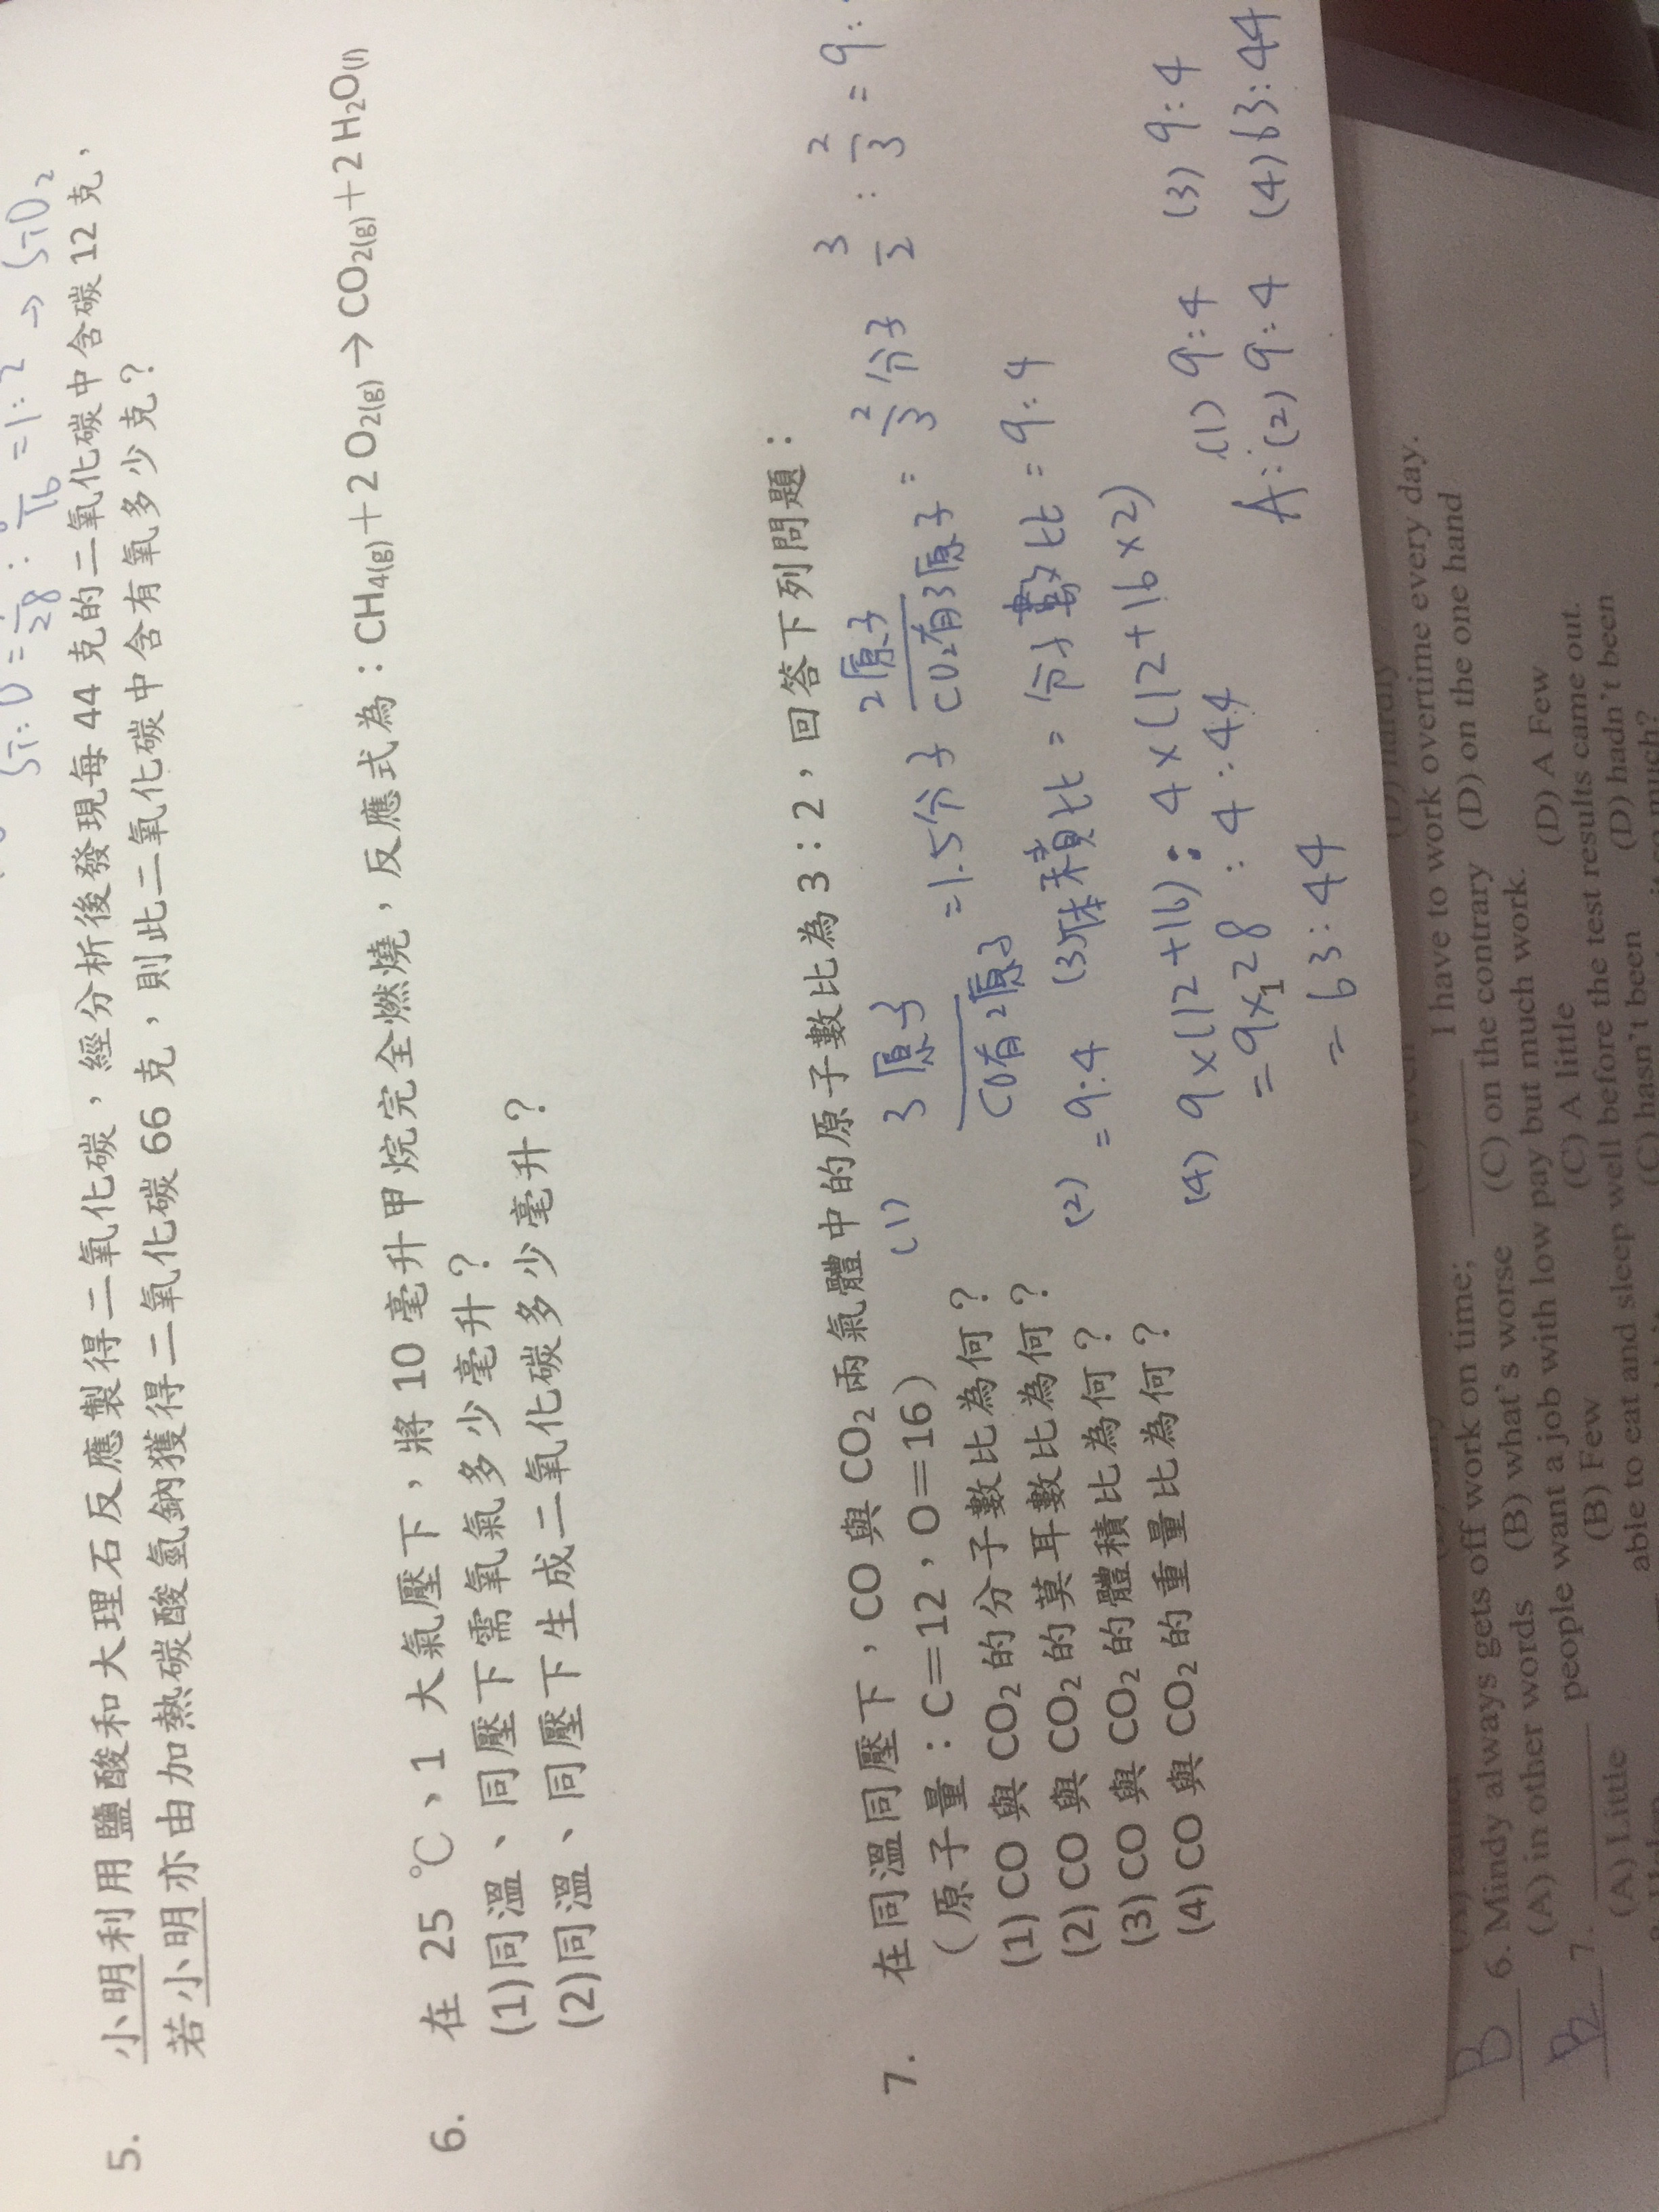 Si:O=
28
:
16
=1:2→SiO2
5. 小明利用鹽酸和大理石反應製得二氧化碳，經分析後發現每 44 克的二氧化碳中含碳 12 克，
若小明亦由加熱碳酸氫鈉獲得二氧化碳 66 克，則此二氧化碳中含有氧多少克？
6. 在 25 ℃、1 大氣壓下，將 10 毫升甲烷完全燃燒，反應式為：CH4(g)＋2 O2(g)→CO2(g)＋2 H2O(l)
(1)同溫、同壓下需氧氣多少毫升？
(2)同溫、同壓下生成二氧化碳多少毫升？
7. 在同溫同壓下，CO 與 CO2 兩氣體中的原子數比為 3：2，回答下列問題：
（原子量：C＝12，O＝16）
(1) CO 與 CO2 的分子數比為何？
(2) CO 與 CO2 的莫耳數比為何？
(3) CO 與 CO2 的體積比為何？
(4) CO 與 CO2 的重量比為何？
(1) 3原子/CO有2原子 =1.5分子 2原子/CO2有3原子 = 2/3分子 3/2 : 2/3 = 9:
(2) =9:4 (3)体積比=分子數比=9:4
(4) 9×(12+16):4×(12+16×2)
=9×28:4:44
=63:44
(1) 9:4 (3) 9:4
A:(2) 9:4 (4) 63:44
B 6. Mindy always gets off work on time; I have to work overtime every day.
(A) in other words (B) what's worse (C) on the contrary (D) on the one hand
B 7. people want a job with low pay but much work.
(A) Little (B) Few (C) A little (D) A Few
able to eat and sleep well before the test results came out.
(C) hasn't been (D) hadn't been